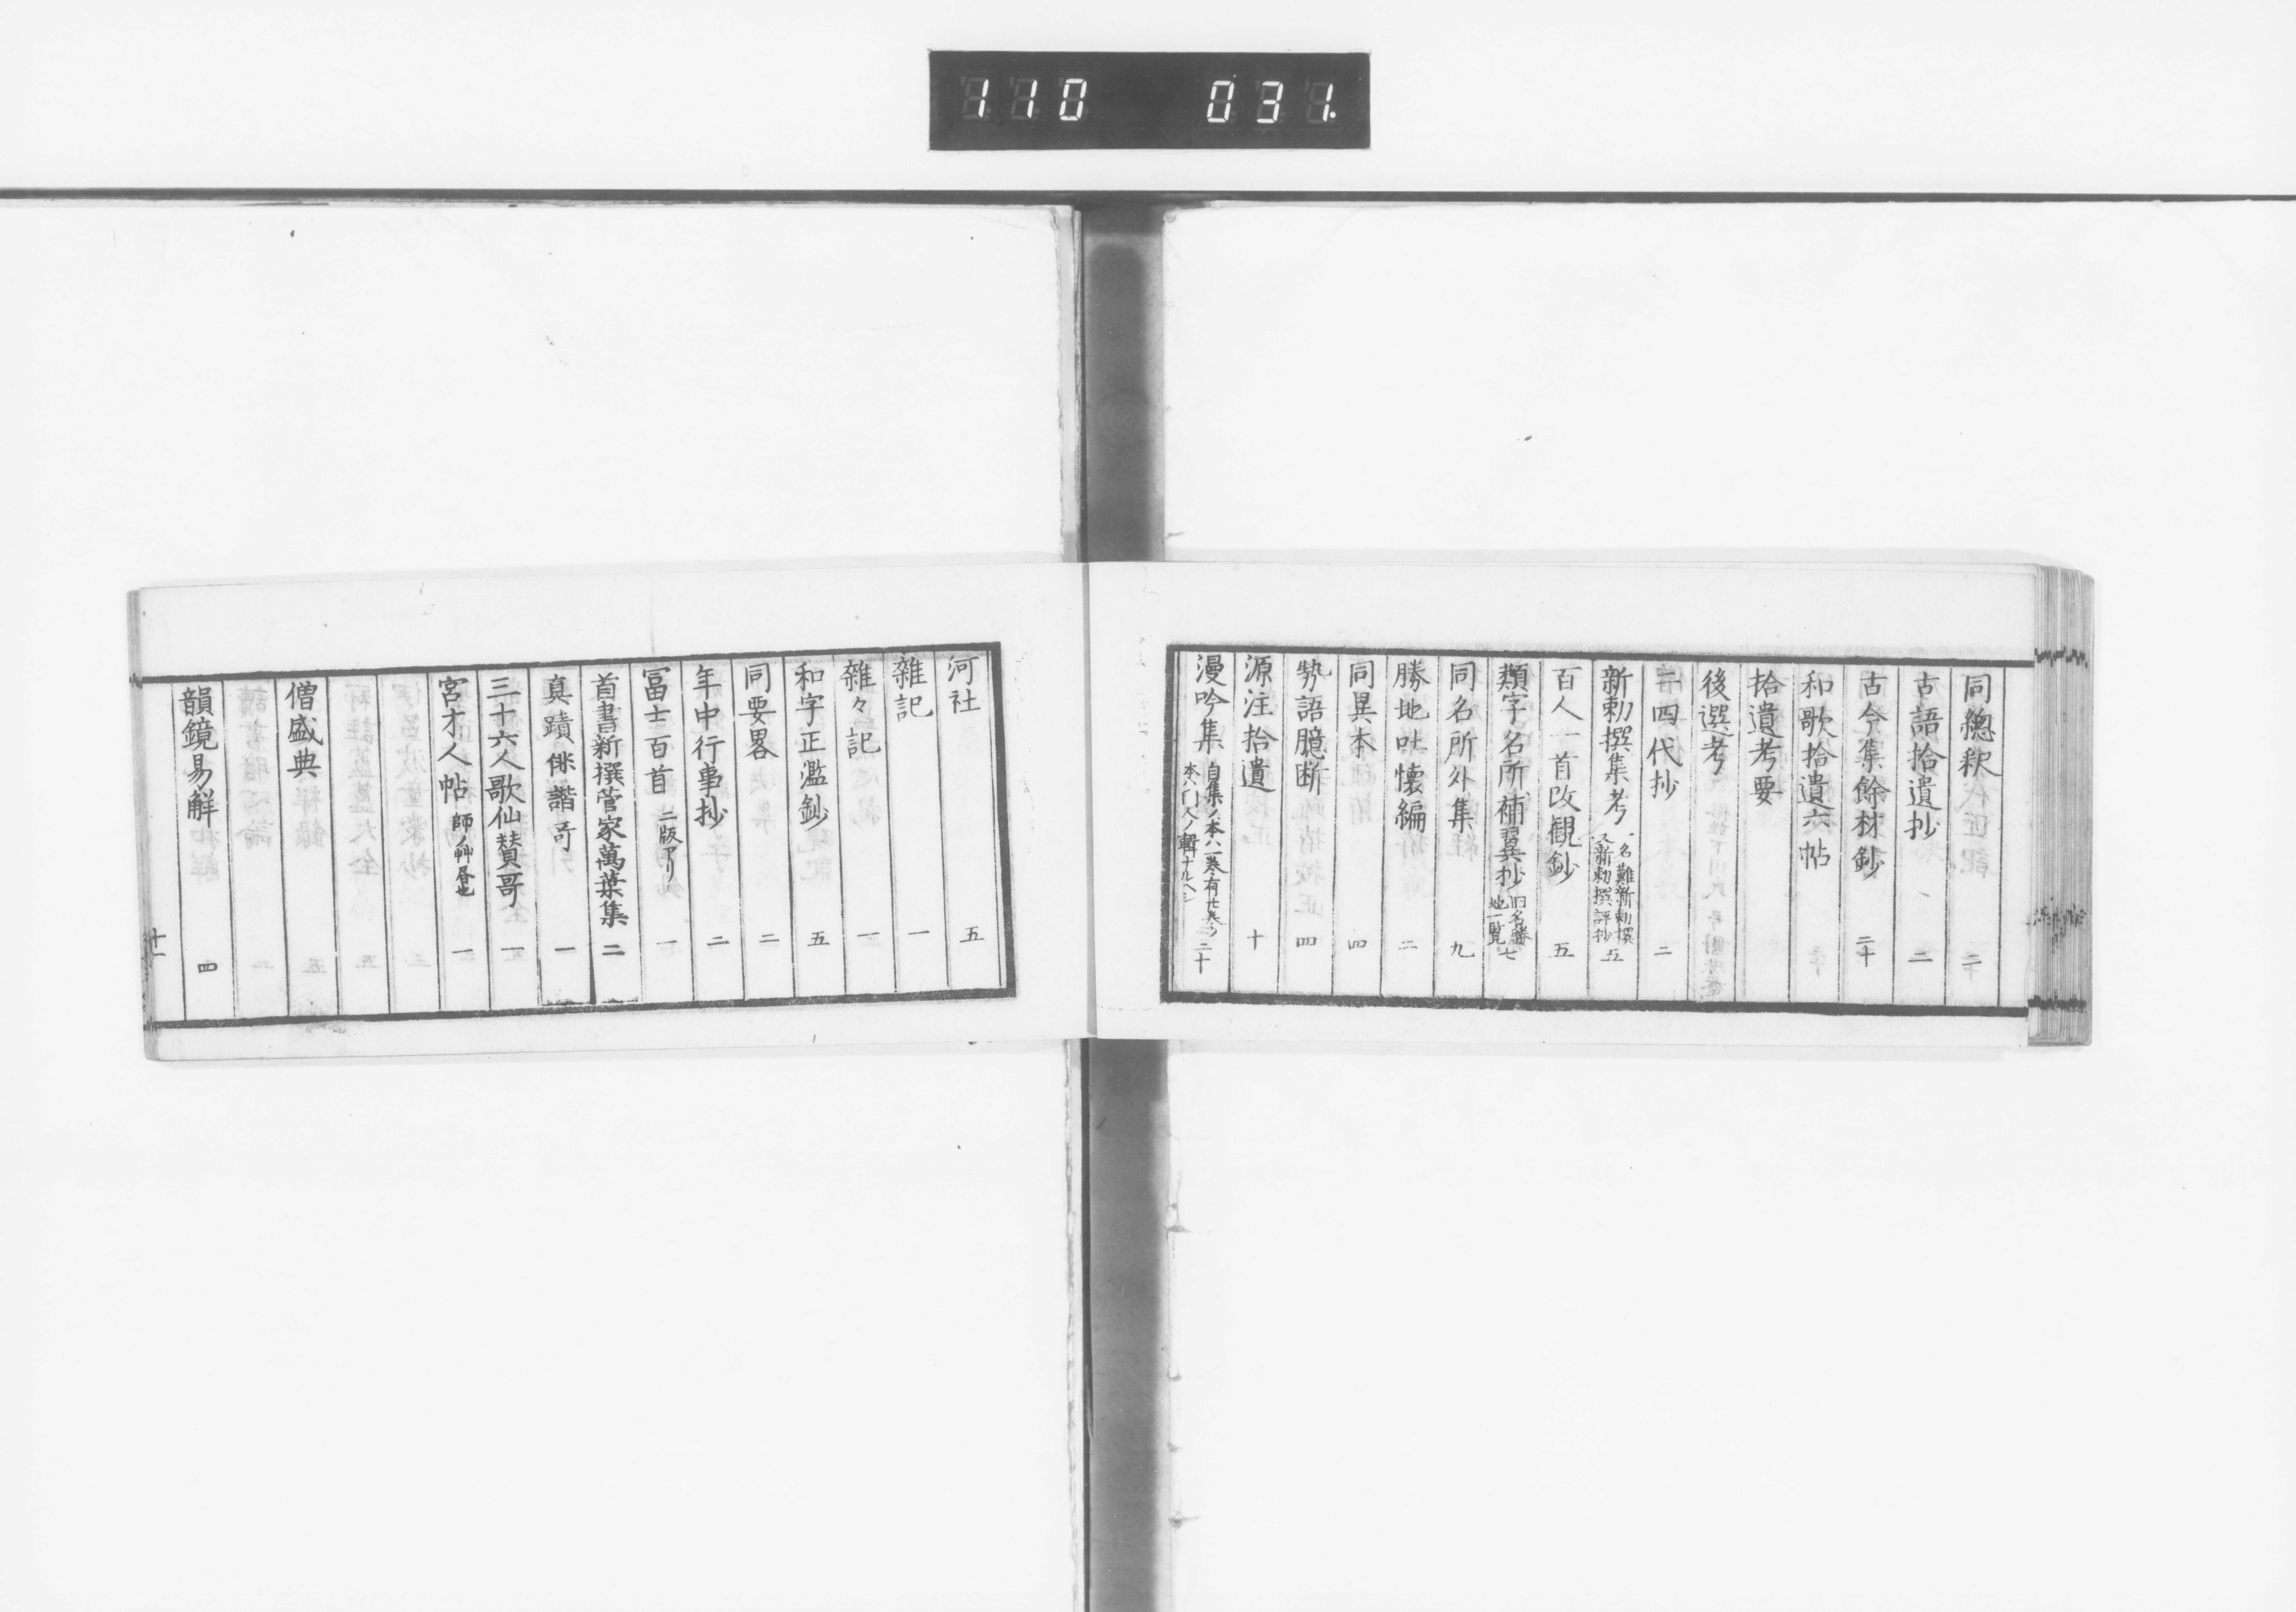 110 031.
同總釈 二
古語拾遺抄 二
古今集餘材鈔 二十
和歌拾遺六帖
拾遺考要
後選考
二四代抄 二
新勅撰集考 一名難新勅撰 又新勅撰評抄 五
百人一首改観鈔 五
類字名所補翼抄 旧名勝地一覧 七
同名所外集 九
勝地吐懐編 二
同異本 四
勢語臆断 四
源注拾遺 十
漫吟集 自集ノ本八一巻有廿巻ノ本ハ門人ノ輯ナルヘシ 二十
河社 五
雑記 一
雑々記 一
和字正濫鈔 五
同要畧 二
年中行事抄 二
冨士百首 二版アリ 一
首書新撰菅家萬葉集 二
真蹟俳諧哥 一
三十六人歌仙賛哥 一
宮才人帖 師ノ艸居也 一
僧盛典
韻鏡易解 四
廿一